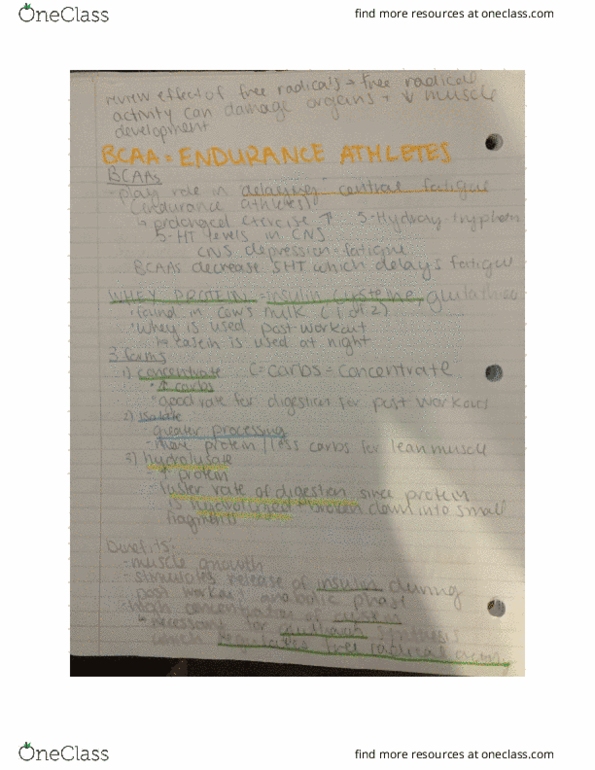 OneClass
find more resources at oneclass.com
review effect of free radicals → free radical
activity can damage organs + ↓ muscle
development
BCAA = ENDURANCE ATHLETES
BCAAs
- play role in delaying "central fatigue"
(endurance athletes)
↳ prolonged exercise ↑ 5-Hydroxy-tryptam
5-HT levels in CNS
CNS depression = fatigue
BCAAs decrease 5HT which delays fatigue
WHEY PROTEIN = insulin, cysteine,
• found in cow's milk (1 of 2)
• whey is used post workout
↳ casein is used at night
3 forms
1) concentrate C = carbs = concentrate
• ↑ carbs
• good rate for digestion for post workouts
2) isolate
- greater processing
- more protein / less carbs for lean muscle
3) hydrolysate
- ↑ protein
- faster rate of digestion since protein
is hydrolyzed - broken down into small
fragments
Benefits:
- muscle growth
- stimulates release of insulin during
post workout anabolic phase
- high concentration of
↳ necessary for synthesis
which regulates free radical activity
OneClass
find more resources at oneclass.com